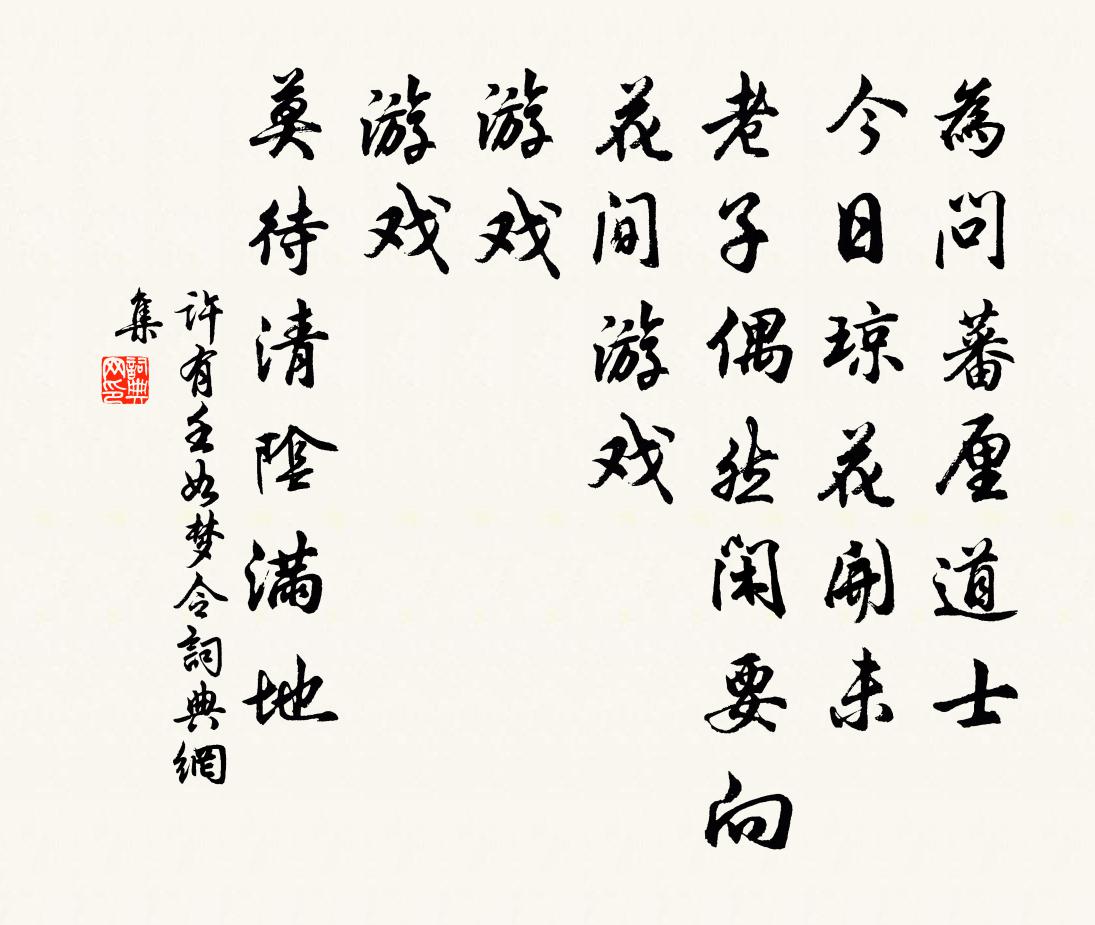 為问蕃厘道士
今日琼花開未
老子偶然閑要向
花间游戏
游戏
游戏
莫待清陰满地
許有壬如梦令詞典網
集
詞典
网印